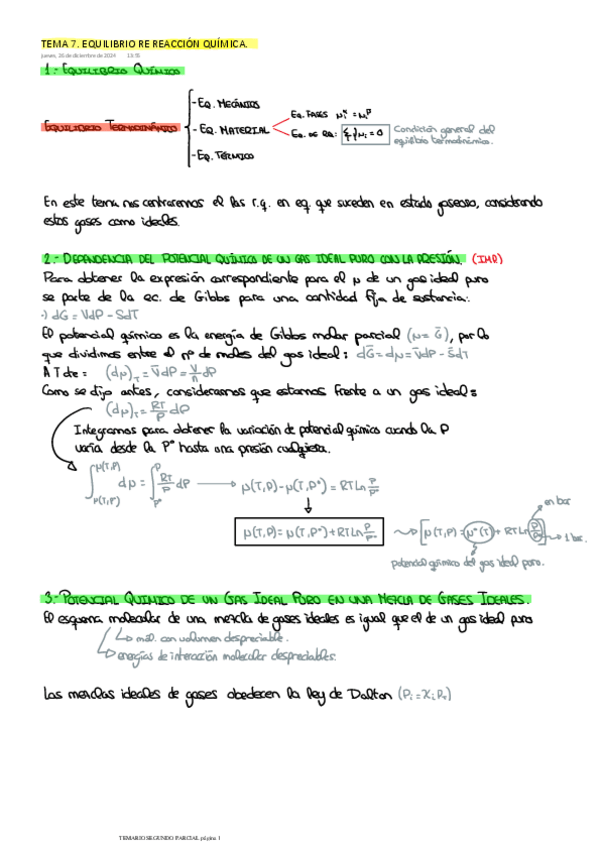 TEMA 7. EQUILIBRIO RE REACCIÓN QUÍMICA.
jueves, 26 de diciembre de 2024
1.- EQUILIBRIO QUÍMICO
EQUILIBRIO TERMODINÁMICO
- EQ. MECÁNICO
- EQ. MATERIAL
EQ. FASES μᵢᵅ = μᵢᵝ
EQ. DE RQ: Σνᵢμᵢ = 0
Condición general del
equilibio termodinámico.
- EQ. TÉRMICO
En este tema nos centraremos el las r.q. en eq. que suceden en estado gaseoso, considerando
estos gases como ideales.
2.- DEPENDENCIA DEL POTENCIAL QUÍMICO DE UN GAS IDEAL PURO CON LA PRESIÓN. (IMP)
Para obtener la expresión correspondiente para el μ de un gas ideal puro
se parte de la ec. de Gibbs para una cantidad fija de sustancia:
·) dG = VdP - SdT
El potencial químico es la energía de Gibbs molar parcial (μ = G̅), por lo
que dividimos entre el nº de moles del gas ideal: dG̅ = dμ = V̅dP - S̅dT
A T cte = (dμ)ₜ = V̅dP = V/n dP
Como se dijo antes, consideramos que estamos frente a un gas ideal =
(dμ)ₜ = RT/P dP
Integramos para obtener la variación de potencial químico cuando la P
varía desde la P° hasta una presión cualquiera.
∫μ(T,P°)^μ(T,P) dμ = ∫P°^P RT/P dP → μ(T,P) - μ(T,P°) = RT Ln P/P°
en bar
μ(T,P) = μ(T,P°) + RT Ln P/P° [μ(T,P) = μ°(T) + RT Ln P/P°] → 1 bar.
potencial químico del gas ideal puro.
3.- POTENCIAL QUÍMICO DE UN GAS IDEAL PURO EN UNA MEZCLA DE GASES IDEALES.
El esquema molecular de una mezcla de gases ideales es igual que el de un gas ideal puro
mol. con volumen despreciable.
energías de interacción molecular despreciables.
Las mezclas ideales de gases obedecen la ley de Dalton (Pᵢ = XᵢPₜ)
TEMARIO SEGUNDO PARCIAL página 1